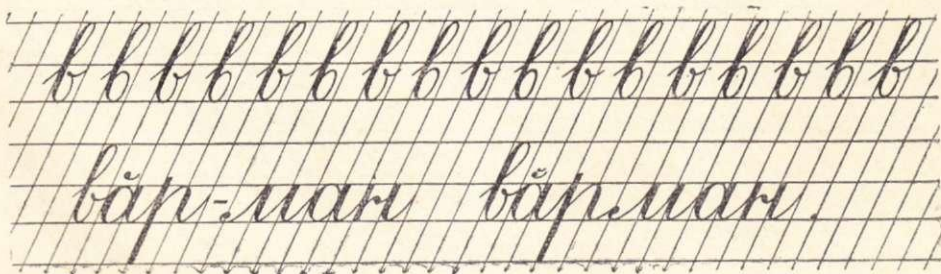 в в в в в в в в в в в в в в в в в
вӑр-ман вӑрман.